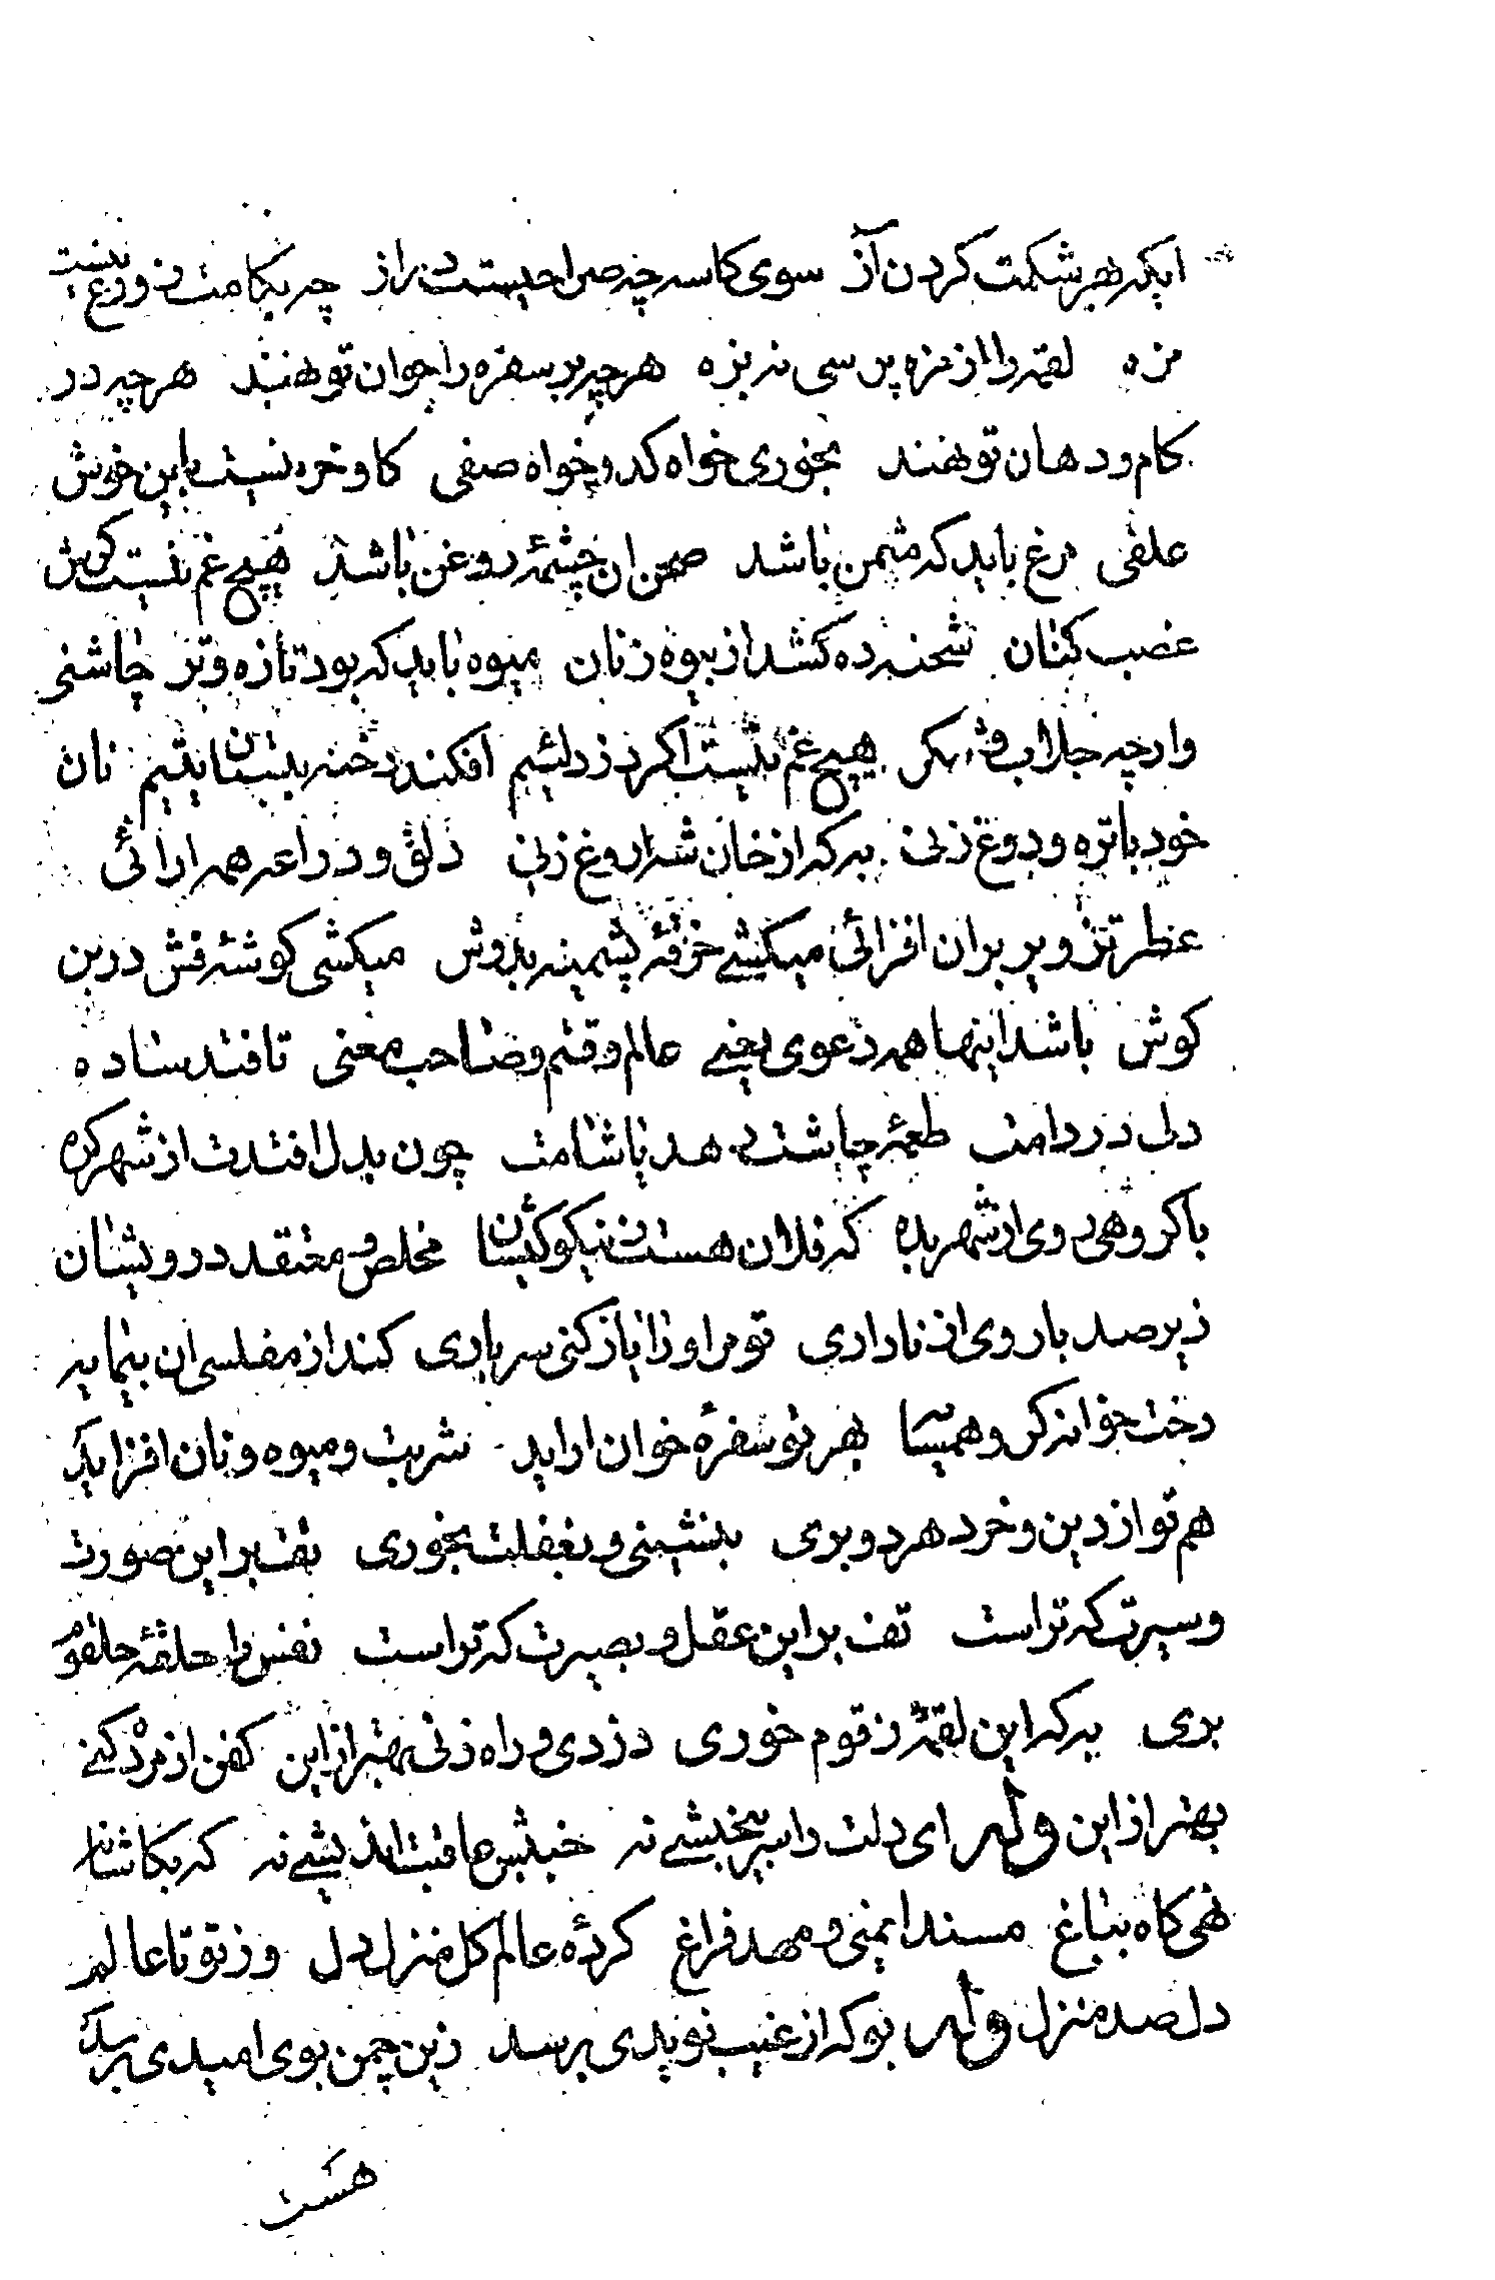 ایکه بهر شکمت کردن آز سوی کاسه چه صراحیست دراز چه بکامت ز ورع نیست
مزه لقمه را از مزه پرسی نه بزه هر چه بر سفره را خوان تو نهند هر چه در
کام و دهان تو نهند بخوری خواه کدر خواه صفی کاو و خر نیست باین خوش
علفی مرغ باید که مثمن باشد صحن ان چشمهٔ روغن باشد هیچ غم نیست کش
غصب کنان شحنه ده کشد از بیوه زنان میوه باید که بود تازه و تر چاشنی
وار چه جلاب و شکر هیچ غم نیست اگر دزد لئیم افکند رخنه ببستان یتیم نان
خود با تره و دوغ زنی به که از خان شه اروغ زنی دلق و دراعه همه ارائی
عطر تزویر بران افزائی میکشی خرقهٔ پشمینه بدوش میکشی کوشهٔ فش در بن
کوش باشد اینها همه دعوی یعنی عالم وقتم و صاحب معنی تا فتد ساده
دلی در دامت طعمهٔ چاشت دهد یا شامت چون بدل افتدت از شهر کره
با کروهی روی از شهر بده که فلان هست ز نیکو کیشان مخلص و معتقد درویشان
زیر صد بار وی از ناداری تو مر او را باز کنی سرباری کند از مفلسی ان بیمایه
رخت خوانه کرو همسایه بهر تو سفرهٔ خوان اراید شربت و میوه و نان افزاید
هم تو از دین و خرد هر دو بری بنشینی و بغفلت بخوری تف بر این صورت
و سیرت که تراست تف بر این عقل و بصیرت که تراست نفس را حلقهٔ حلقوم
بری به که این لقمهٔ زقوم خوری دزدی و راه زنی بهتر از این کفن از مرده کنی
بهتر از این وله ای دلت را سر بیخیشی نه خبیش عاقبت اندیشی نه که بکاشانه
نهی کاه بباغ مسند ایمنی و مهد فراغ کردهٔ عالم کل منزل دل وز تو تا عالم
دل صد منزل وله بو که از غیب نویدی برسد زین چمن بوی امیدی برسد
هست